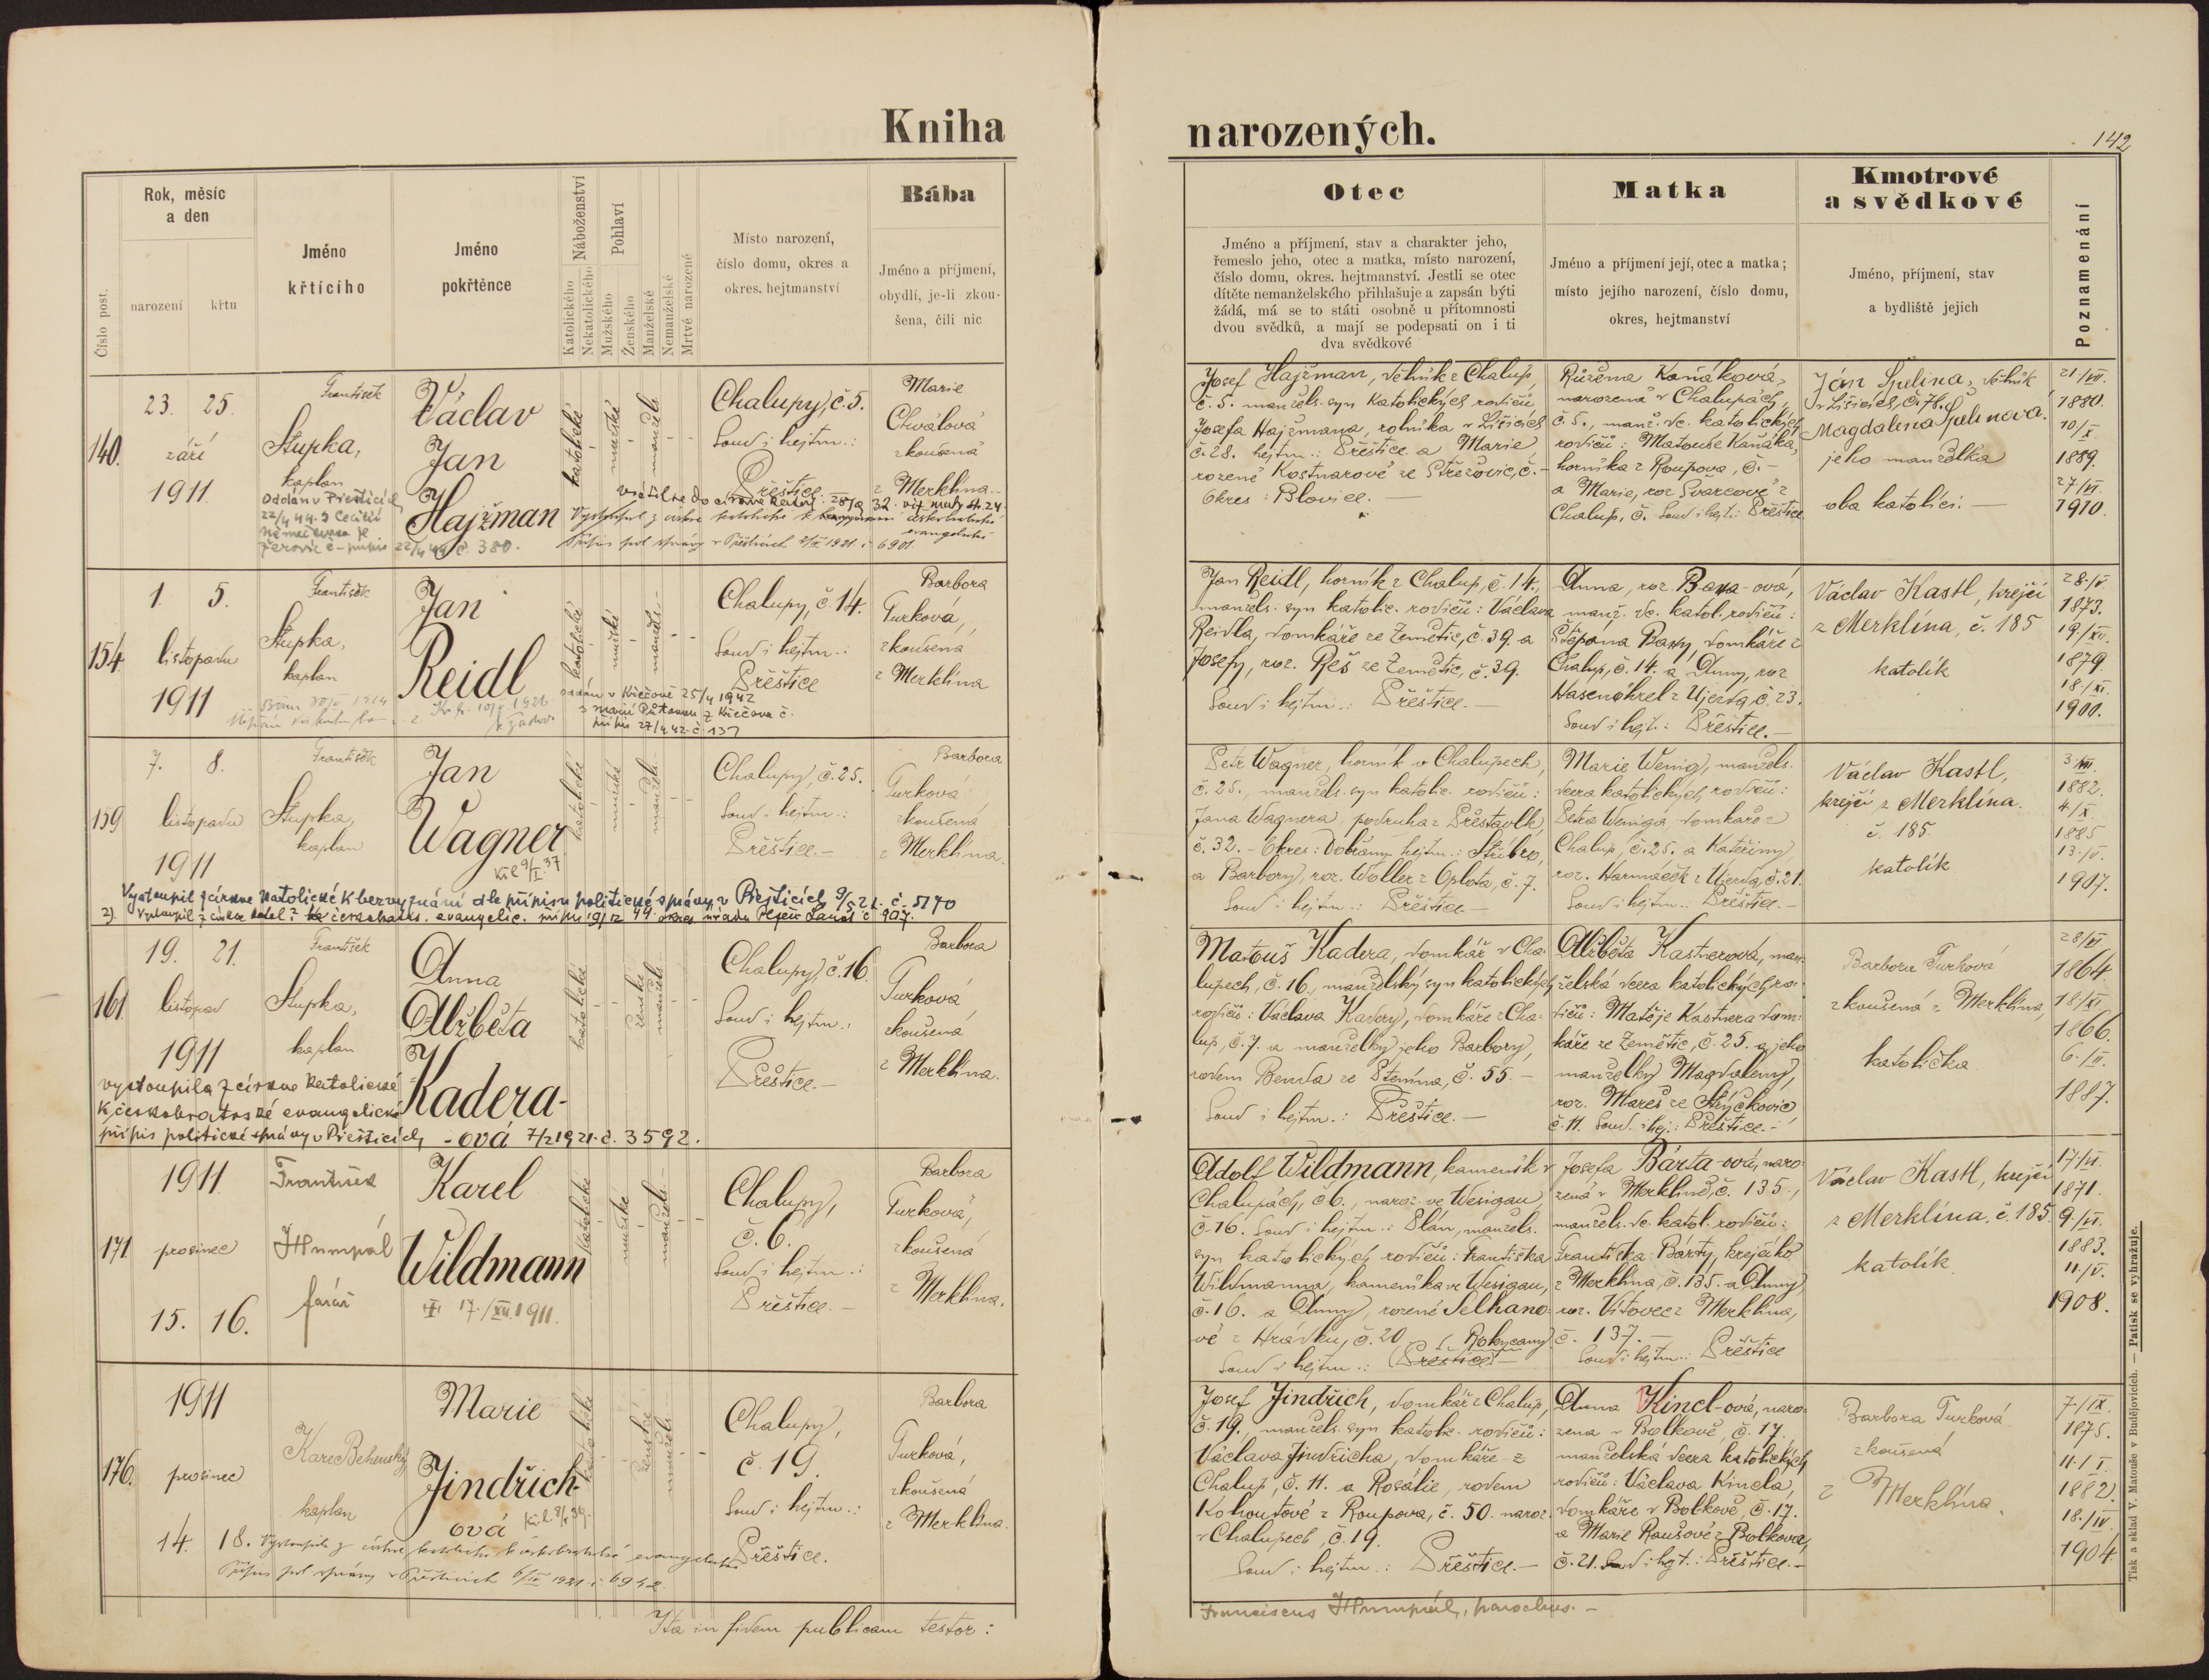 Kniha
narozených.
142
Číslo post.
Rok, měsíc
a den
narození
křtu
Jméno
křtícího
Jméno
pokřtěnce
Náboženství
Katolického
Nekatolického
Pohlaví
Mužského
Ženského
Manželské
Nemanželské
Mrtvě narozené
Místo narození,
číslo domu, okres a
okres. hejtmanství
Bába
Jméno a příjmení,
obydlí, je-li zkou-
šena, čili nic
Otec
Jméno a příjmení, stav a charakter jeho,
řemeslo jeho, otec a matka, místo narození,
číslo domu, okres. hejtmanství. Jestli se otec
dítěte nemanželského přihlašuje a zapsán býti
žádá, má se to státi osobně u přítomnosti
dvou svědků, a mají se podepsati on i ti
dva svědkové
Matka
Jméno a příjmení její, otec a matka;
místo jejího narození, číslo domu,
okres, hejtmanství
Kmotrové
a svědkové
Jméno, příjmení, stav
a bydliště jejich
Poznamenání
140.
23. 25.
září
1911.
František
Stupka,
kaplan
Oddán v Přešticích
22/4 44. s Cecilií
22/4 44 č. 380.
Václav
Jan
Hajžman
katolické
mužské
manžels.
Chalupy, č. 5.
Soud i hejtm.:
Přeštice
Marie
Chválová
zkoušená
z Merklína.
Vrátil se do církve katol. 28/9 32.
Vystoupil z církve katolické k českobratrské
evangelické
Přípis pol. správy v Přešticích 1921 č. 6901.
Josef Hajžman, dělník z Chalup,
č. 5. manžels. syn katolických rodičů
Josefa Hajžmana, rolníka v Lišicích
č. 28. hejtm.: Přeštice a Marie
rozené Kostnarové ze Střežovic, č. -
Okres: Blovice.
Růžena Kaňáková,
narozená v Chalupách
č. 5., manž. dc. katolických
rodičů: Matouše Kaňáka,
horníka z Roupova, č. -
a Marie, roz. Švarcové z
Chalup, č. Soud i hejt.: Přeštice
Ján Špelina, dělník
z Lišicích, č. 76.
Magdalena Špelinová
jeho manželka
oba katolíci. —
21/VII.
1880.
10/X.
1889.
27/VI.
1910.
154
1. 5.
listopadu
1911
František
Stupka,
kaplan
Jan
Reidl
katolické
mužské
manžels.
Chalupy, č. 14.
Soud i hejtm.:
Přeštice
Barbora
Turková,
zkoušená
z Merklína
oddán v Křečově 25/4 1942
přípis 27/4 42. č. 137
Jan Reidl, horník z Chalup, č. 14.,
manžels. syn katolic. rodičů: Václava
Reidla, domkáře ze Zemětic, č. 39. a
Josefy, roz. Reš ze Zemětic, č. 39.
Soud i hejtm.: Přeštice. —
Anna, roz. Baxa-ová,
manž. dc. katol. rodičů:
Štěpána Baxy, domkáře z
Chalup, č. 14. a Anny, roz.
Hasenohrel z Ujezda, č. 23.
Soud i hejt.: Přeštice. —
Václav Kastl, krejčí
z Merklína, č. 185
katolík
28./V.
1873.
19./XII.
1879.
18./XI.
1900.
159
7. 8.
listopadu
1911
František
Stupka,
kaplan
Jan
Wagner
kat. 9/I. 37
katolické
mužské
manžels.
Chalupy, č. 25.
Soud i hejtm.:
Přeštice. —
Barbora
Turková
zkoušená
z Merklína.
Vystoupil z církve katolické k bezvyznání dle přípisu politické správy v Přešticích 9/5 21. č. 5170
2) Vystoupil z církve katol. k českobratrs. evangelic. přípis 19/12 44. okres. úřadu Plzeň č. 907.
Petr Wagner, horník v Chalupech,
č. 25., manžels. syn katolic. rodičů:
Jana Wagnera, podruha z Přestavlk
č. 32. - Okres: Dobřany, hejtm.: Stříbro,
a Barbory, roz. Woller z Oplota, č. 7.
Soud i hejtm.: Přeštice. —
Marie Wenig, manžels.
dcera katolických rodičů:
Petra Weniga domkáře z
Chalup, č. 25. a Kateřiny,
roz. Harmáček z Újezda, č. 21.
Soud i hejtm.: Přeštice. —
Václav Kastl,
krejčí z Merklína.
č. 185
katolík
3/VII.
1882.
4/X.
1885
13./V.
1907.
161
19. 21.
listopad
1911
František
Stupka,
kaplan
Anna
Alžběta
Kadera-
-ová
katolické
ženské
manžels.
Chalupy, č. 16
Soud i hejtm.:
Přeštice. —
Barbora
Turková
zkoušená
z Merklína.
vystoupila z církve katolické
k českobratrské evangelické
přípis politické správy v Přešticích 7/2 1921. č. 3592.
Matouš Kadera, domkář v Cha-
lupech, č. 16., manželský syn katolických
rodičů: Václava Kadery, domkáře z Cha-
lup, č. 7. a manželky jeho Barbory,
rodem Benda ze Stenína, č. 55. —
Soud i hejtm.: Přeštice. —
Alžběta Kastnerová, man-
želská dcera katolických ro-
dičů: Matěje Kastnera dom-
káře ze Zemětic, č. 25. a jeho
manželky Magdaleny,
roz. Mareš ze Strýčkovic,
č. 11. Soud. i hej.: Přeštice. —
Barbora Turková
zkoušená z Merklína,
katolička
28/VI
1864.
18./XI.
1866.
6./II.
1887.
171
1911
prosinec
15. 16.
František
Humpál
farář
Karel
Wildmann
† 17./XII. 1911.
katolické
mužské
manžels.
Chalupy,
č. 6.
Soud i hejtm.:
Přeštice. —
Barbora
Turková,
zkoušená
z Merklína.
Adolf Wildmann, kameník v
Chalupách, č. 6., naroz. ve Wesigau,
č. 16. Soud i hejtm.: Plán, manžels.
syn katolických rodičů: Františka
Wildmanna, kameníka ve Wesigau,
č. 16. a Anny, rozené Selhano-
vé z Hrádku, č. 20 (Rokycany)
Soud i hejtm.: (Přeštice) —
Josefa Bárta-ová, naro-
zená v Merklíně, č. 135.,
manžels. dc. katol. rodičů:
Františka Bárty, krejčího
z Merklína, č. 135. a Anny,
roz. Vítovec z Merklína,
č. 137. —
Soud i hejtm.: Přeštice
Václav Kastl, krejčí
z Merklína, č. 185.
katolík
17/VI.
1871.
9/VI.
1883.
11/V.
1908.
176.
1911
prosinec
14. 18.
Karel Behenský
kaplan
Marie
Jindřich-
ová
katolické
ženské
manžels.
Chalupy,
č. 19.
Soud i hejtm.:
Přeštice.
Barbora
Turková,
zkoušená
z Merklína.
Vystoupila z církve katolické k českobratrské evangelické
Přípis pol. správy v Přešticích 6/IV 1921 č. 6942
Josef Jindřich, domkář z Chalup,
č. 19., manžels. syn katolic. rodičů:
Václava Jindřicha, domkáře z
Chalup, č. 11. a Rosálie, rodem
Kohoutové z Roupova, č. 50. naroz.
v Chalupech, č. 19.
Soud i hejtm.: Přeštice. —
Anna Kincl-ová, naro-
zena v Bolkově, č. 17.
manželská dcera katolických
rodičů: Václava Kincla,
domkáře v Bolkově, č. 17.
a Marie Raušové z Bolkova,
č. 21. Soud i hejt.: Přeštice. —
Barbora Turková
zkoušená
z Merklína.
7/IX.
1875.
11./I.
1882.
18./IV.
1904
Ita in fidem publicam testor:
Franciscus Humpál, parochus. —
Tisk a sklad V. Matouše v Budějovicích. — Patisk se vyhražuje.